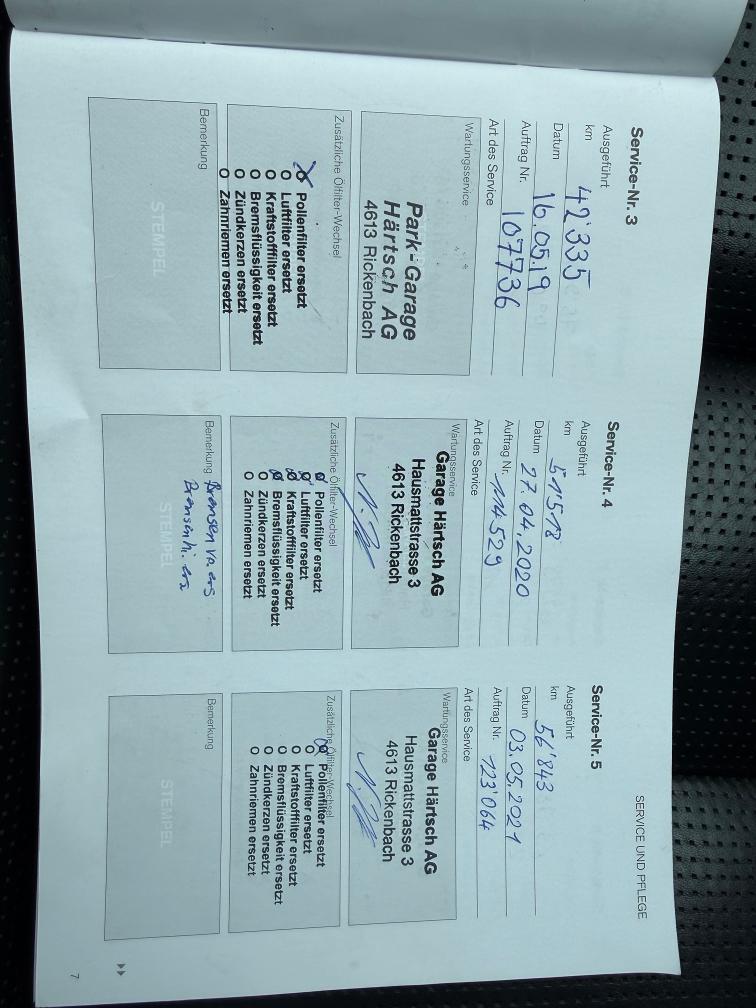 SERVICE UND PFLEGE
Service-Nr. 3
Ausgeführt
km 42'335
Datum 16.05.19
Auftrag Nr. 107736
Art des Service
Wartungsservice
Park-Garage
Härtsch AG
4613 Rickenbach
Zusätzliche Ölfilter-Wechsel
O Pollenfilter ersetzt
O Luftfilter ersetzt
O Kraftstofffilter ersetzt
O Bremsflüssigkeit ersetzt
O Zündkerzen ersetzt
O Zahnriemen ersetzt
Bemerkung
STEMPEL
Service-Nr. 4
Ausgeführt
km 51'518
Datum 27.04.2020
Auftrag Nr. 114529
Art des Service
Wartungsservice
Garage Härtsch AG
Hausmattstrasse 3
4613 Rickenbach
Zusätzliche Ölfilter-Wechsel
O Pollenfilter ersetzt
O Luftfilter ersetzt
O Kraftstofffilter ersetzt
O Bremsflüssigkeit ersetzt
O Zündkerzen ersetzt
O Zahnriemen ersetzt
Bemerkung Bremsen va. ers
Bremsen hi. ers
STEMPEL
Service-Nr. 5
Ausgeführt
km 56'843
Datum 03.05.2021
Auftrag Nr. 123'064
Art des Service
Wartungsservice
Garage Härtsch AG
Hausmattstrasse 3
4613 Rickenbach
Zusätzliche Ölfilter-Wechsel
O Pollenfilter ersetzt
O Luftfilter ersetzt
O Kraftstofffilter ersetzt
O Bremsflüssigkeit ersetzt
O Zündkerzen ersetzt
O Zahnriemen ersetzt
Bemerkung
STEMPEL
7